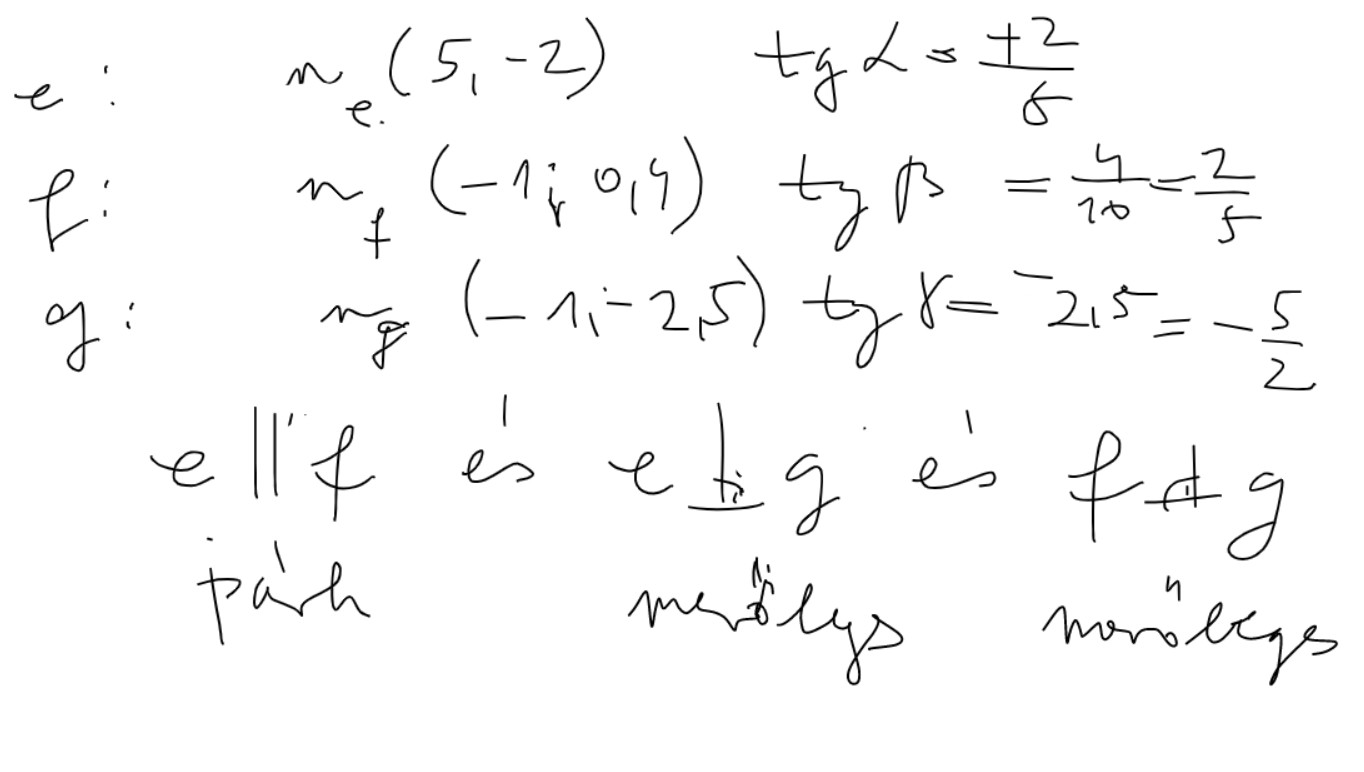 e: n_e. (5, -2) tg α = +2/5
f: n_f (-1; 0,4) tg β = 4/10 = 2/5
g: n_g (-1; -2,5) tg γ = -2,5 = -5/2
e || f és e ⊥ g és f ⊥ g
párh merőlgs merőleges